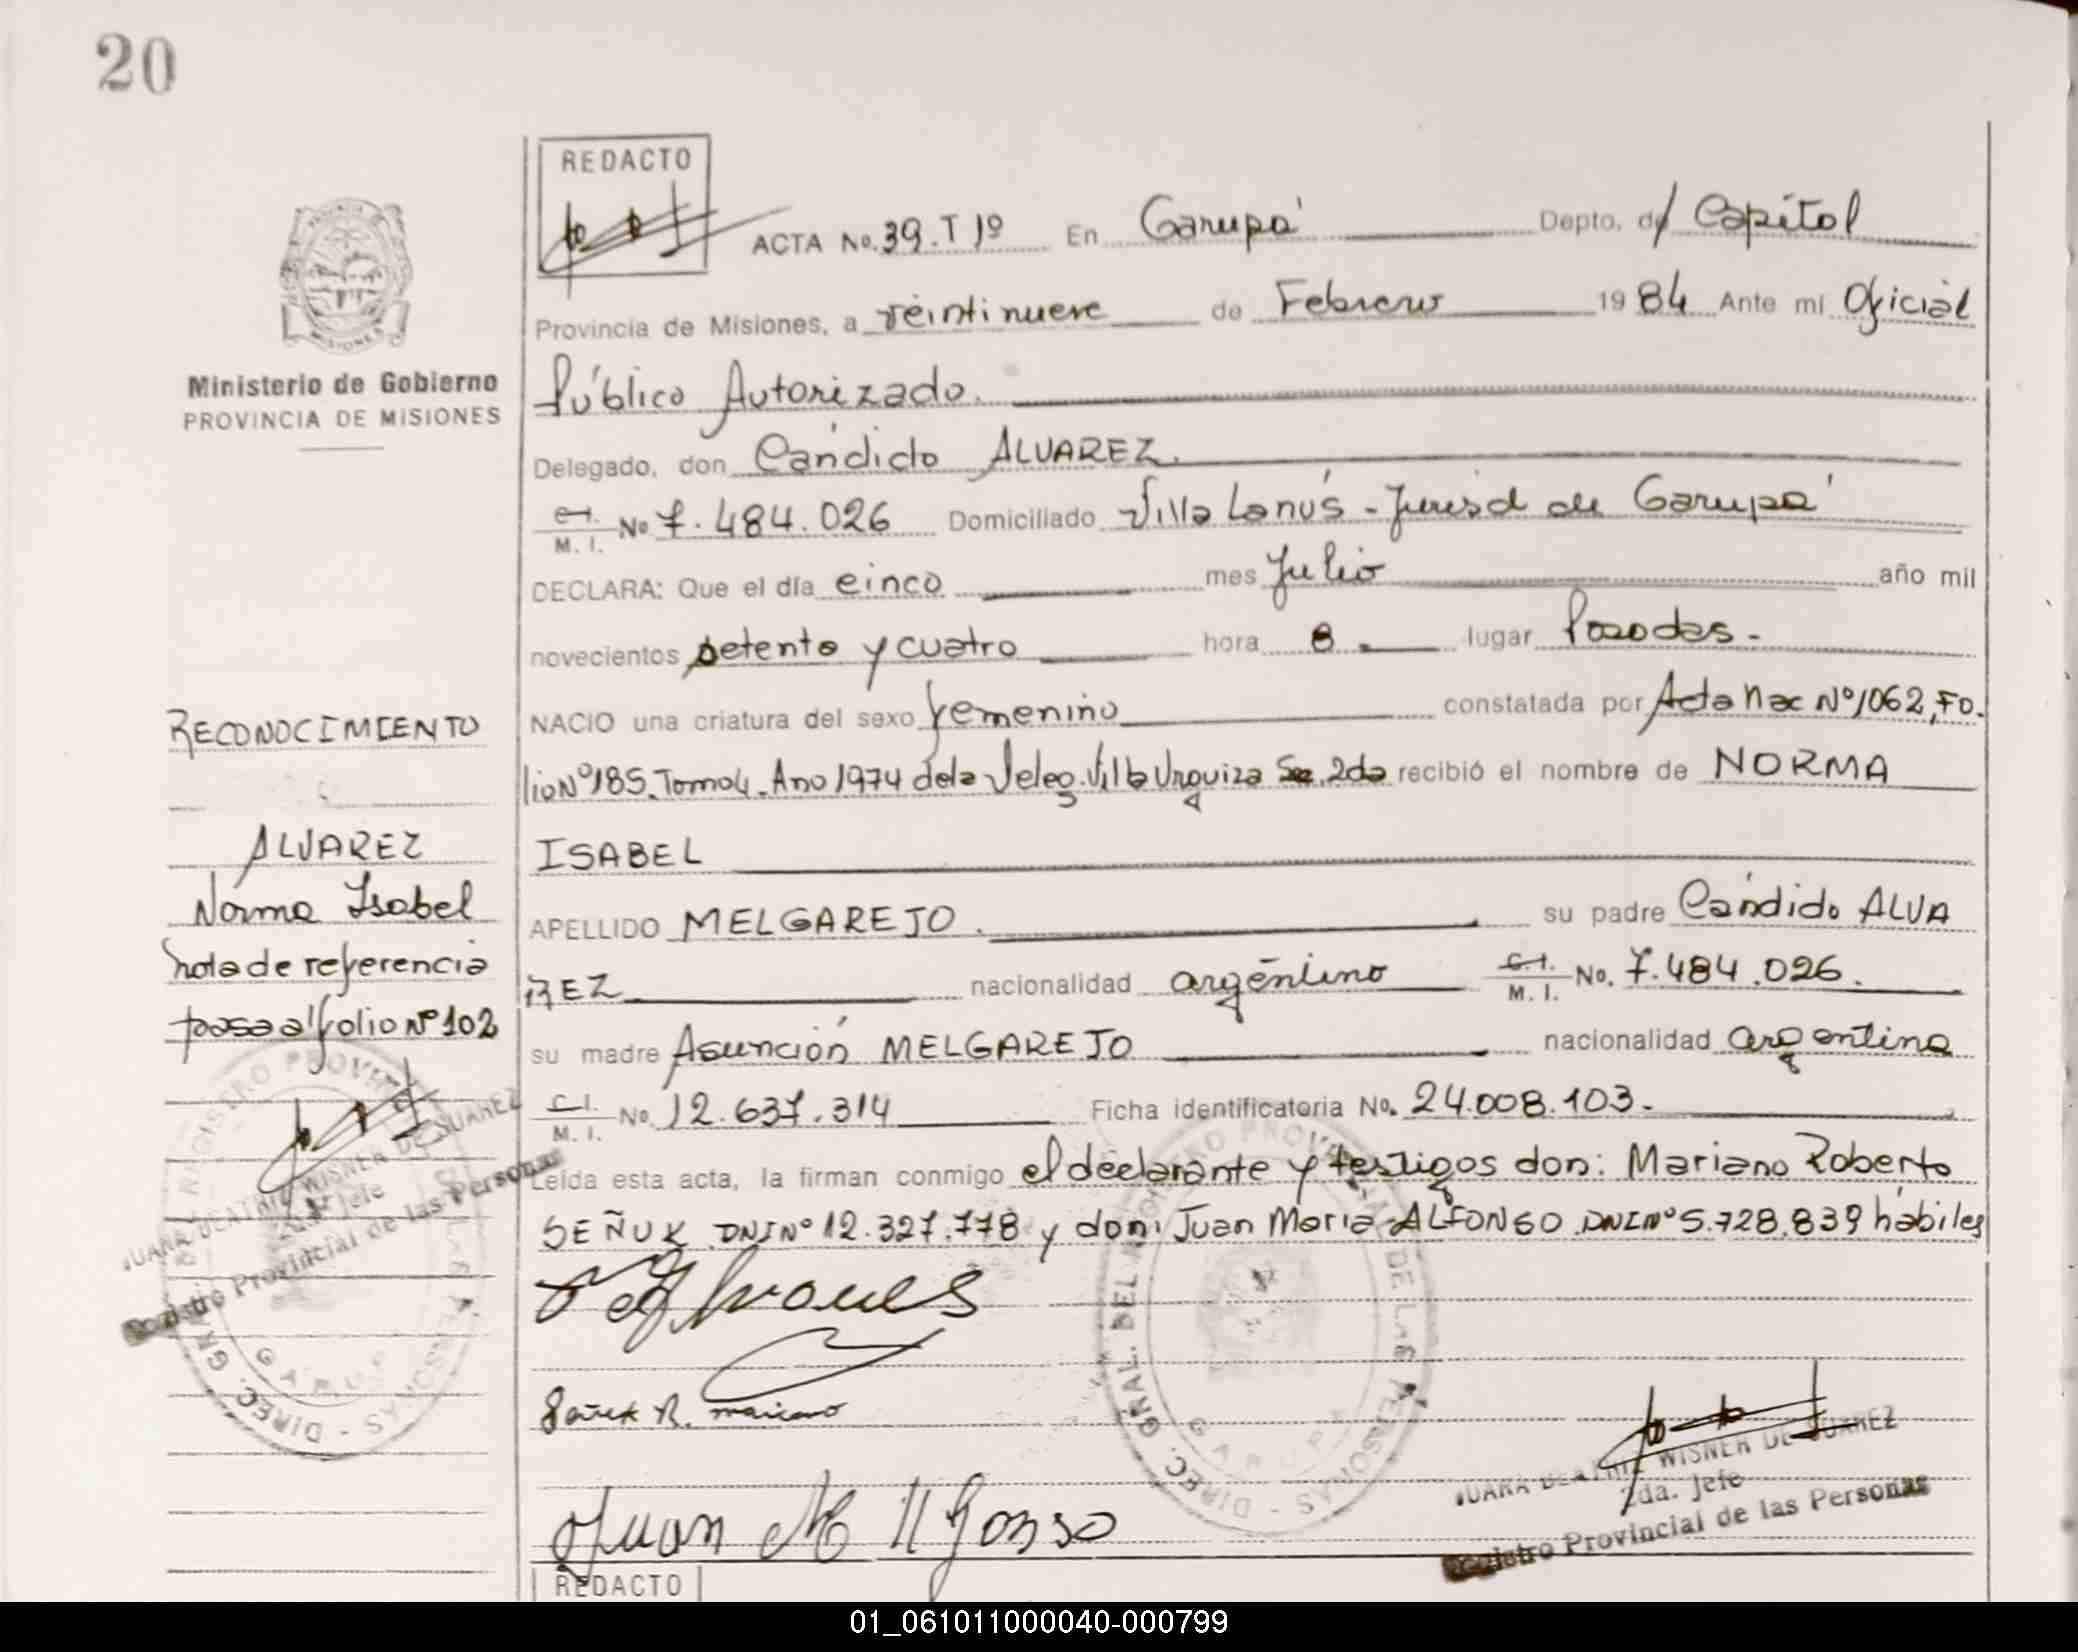 20
REDACTO
ACTA No. 39.T 1º En Garupá Depto. de Capital
Provincia de Misiones, a veintinueve de Febrero 1984 Ante mí Oficial
Público Autorizado.
Ministerio de Gobierno
PROVINCIA DE MISIONES
Delegado, don Cándido ALVAREZ.
C.I. M. I. No 7.484.026 Domiciliado Villa Lanús - Jurisd de Garupá
DECLARA: Que el día cinco mes Julio año mil
novecientos setenta y cuatro hora 8 lugar Posadas.
NACIO una criatura del sexo femenino constatada por Acta Nac Nº1062, Fo.
lio Nº185. Tomo 4. Año 1974 de la Deleg. Villa Urquiza Sec. 2da recibió el nombre de NORMA
ISABEL
APELLIDO MELGAREJO. su padre Cándido ALVA
REZ nacionalidad argentino C.I. M. I. No. 7.484.026.
su madre Asunción MELGAREJO nacionalidad argentina
C.I. M. I. No. 12.637.314 Ficha identificatoria No. 24.008.103.
Leída esta acta, la firman conmigo el declarante y testigos don: Mariano Roberto
SEÑUK DNI Nº 12.327.778 y don: Juan Maria ALFONSO DNI Nº 5.728.839 hábiles
RECONOCIMIENTO
ALVAREZ
Norma Isabel
nota de referencia
pasa al folio Nº 102
JUANA BEATRIZ WISNER DE SUAREZ
2da. Jefe
Registro Provincial de las Personas
DIREC. GRAL. DEL REGISTRO PROVINCIAL DE LAS PERSONAS -
GARUPA
Señuk R. mariano
DIREC. GRAL. DEL REGISTRO PROVINCIAL DE LAS PERSONAS -
GARUPA
Juan M Alfonso
JUANA BEATRIZ WISNER DE SUAREZ
2da. Jefe
Registro Provincial de las Personas
REDACTO
01_061011000040-000799